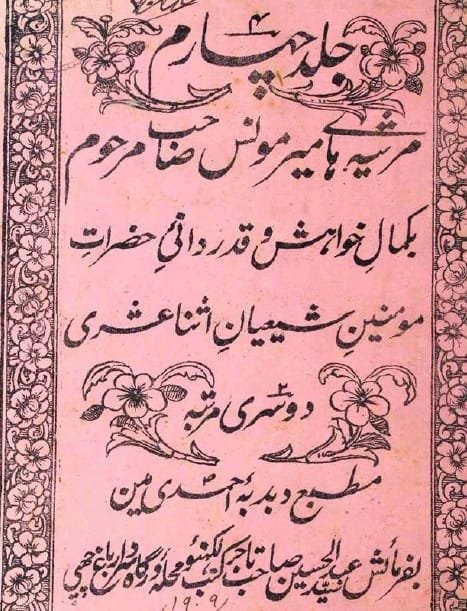 جلد چہارم ۴
مرثیہ ہائے میر مونس صاحب مرحوم
بکمالِ خواہش و قدردانیِ حضراتِ
مومنینِ شیعیانِ اثنا عشری
دوسری مرتبہ ۲
مطبع دبدبۂ احمدی مین
بفرمائش سید عبد الحسین صاحب تاجر کتب لکھنؤ محلہ درگاہ باغ چھپی
۱۹۰۹